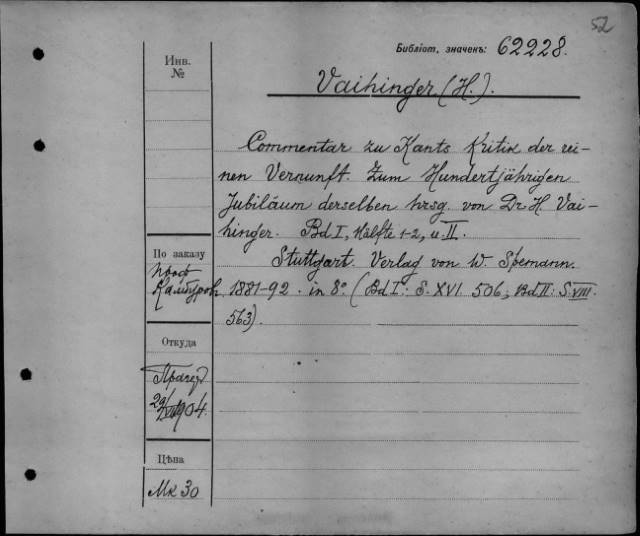 52
Библіот. значекъ: 62228.
Инв.
№
Vaihinger (H.).
Commentar zu Kants Kritik der rei-
nen Vernunft. Zum Hundertjährigen
Jubiläum derselben hrsg. von Dr. H. Vai-
hinger. Bd I, Hälfte 1-2, u. II.
Stuttgart. Verlag von W. Spemann.
1881-92. in 8° (Bd I: S. XVI 506; Bd II: S. VIII.
563).
По заказу
проф.
Откуда
1904.
Цѣна
Мк 30